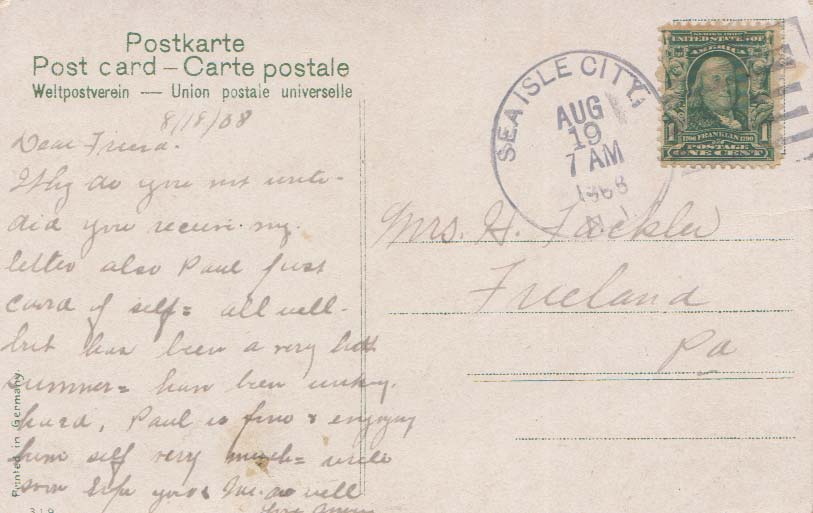 Postkarte
Post card – Carte postale
Weltpostverein — Union postale universelle
8/18/08
Dear Friend.
Why do you not write-
did you receive my
letter also Paul just
card of self= all well-
but has been a very hot
summer= have been
hard, Paul is fine & enjoying
him self very much= write
soon hope you & are well
Printed in Germany.
319
SEA ISLE CITY,
AUG
19
7 AM
1908
N.J.
SERIES 1902
UNITED STATES OF
AMERICA
1706 FRANKLIN 1790
1 POSTAGE 1
ONE CENT
Mrs. H. Fackler
Freeland
Pa